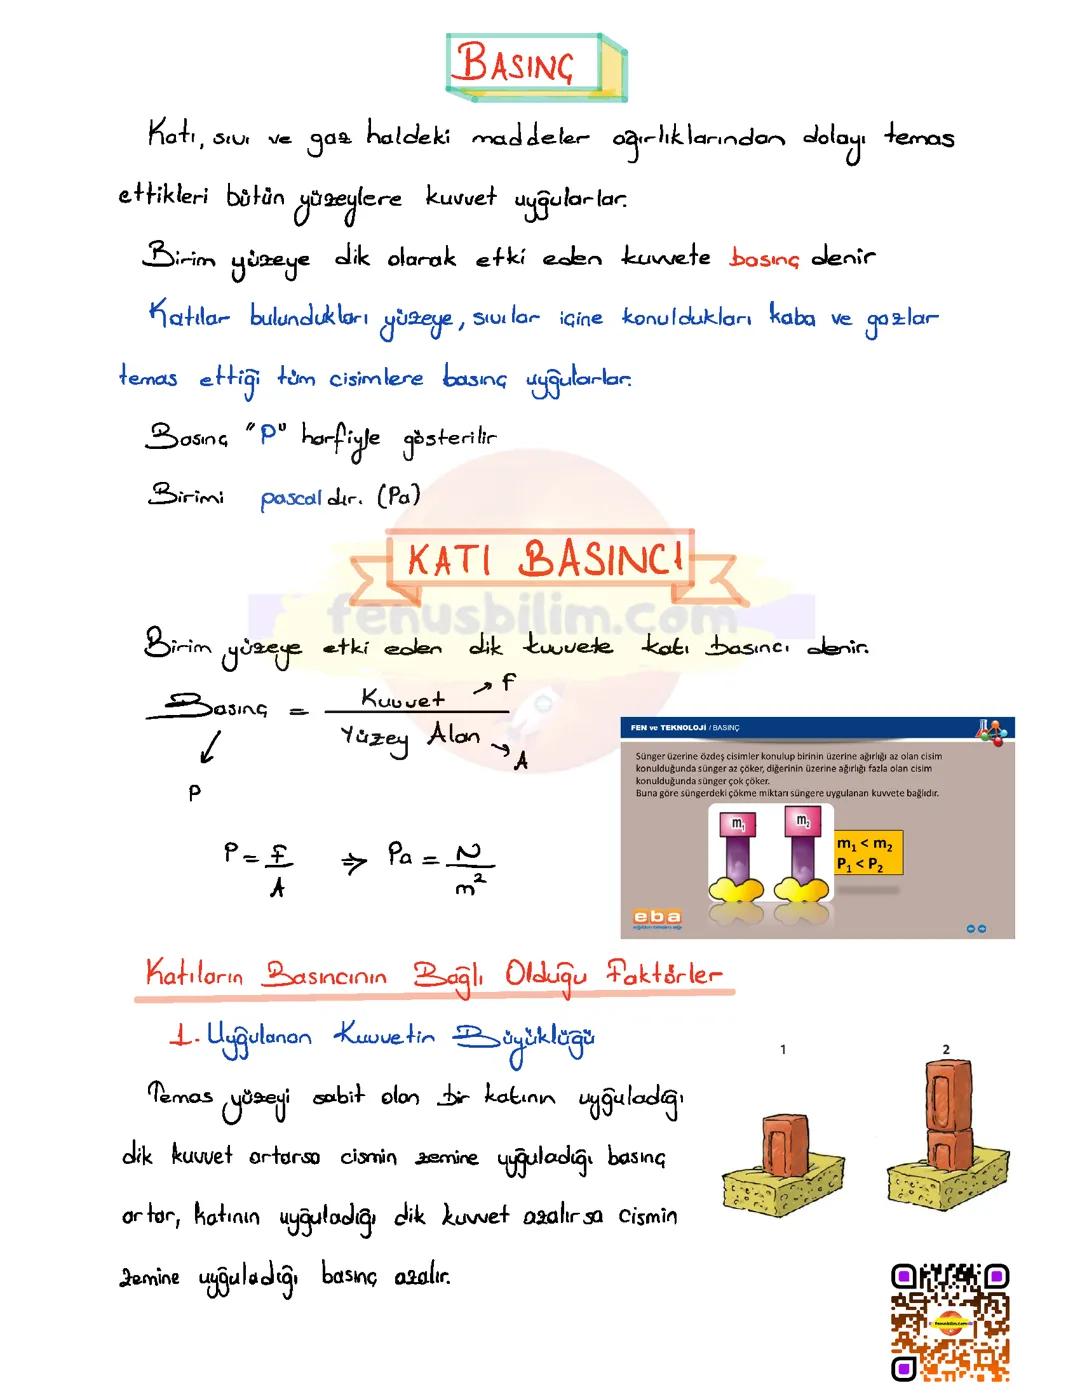 BASINÇ
Katı, sıvı ve gaz haldeki maddeler ağırlıklarından dolayı temas
ettikleri bütün yüzeylere kuvvet uygularlar.
Birim yüzeye dik olarak etki eden kuvvete basınç denir
Katılar bulundukları yüzeye, sıvılar içine konuldukları kaba ve gazlar
temas ettiği tüm cisimlere basınç uygularlar.
Basınç "P" harfiyle gösterilir
Birimi pascaldır. (Pa)
KATI BASINCI
fenusbilim.com
Birim yüzeye etki eden dik kuvvete katı basıncı denir.
Basınç = Kuvvet → f
Yüzey Alan → A
P
P = f / A ⇒ Pa = N / m²
FEN ve TEKNOLOJİ / BASINÇ
Sünger üzerine özdeş cisimler konulup birinin üzerine ağırlığı az olan cisim
konulduğunda sünger az çöker, diğerinin üzerine ağırlığı fazla olan cisim
konulduğunda sünger çok çöker.
Buna göre süngerdeki çökme miktarı süngere uygulanan kuvvete bağlıdır.
m₁ m₂
m₁ < m₂
P₁ < P₂
eba
Katıların Basıncının Bağlı Olduğu Faktörler
1. Uygulanan Kuvvetin Büyüklüğü
Temas yüzeyi sabit olan bir katının uyguladığı
dik kuvvet artarsa cismin zemine uyguladığı basınç
artar, katının uyguladığı dik kuvvet azalırsa cismin
zemine uyguladığı basınç azalır.
1 2
fenusbilim.com